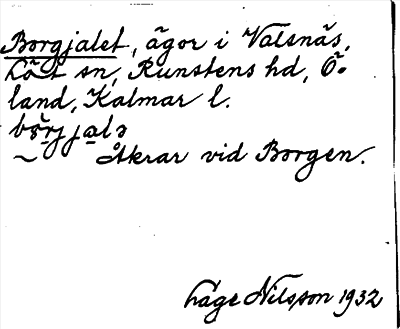 Borgjalet, ägor i Valsnäs,
Löt sn, Runstens hd, Ö-
land, Kalmar l.
Åkrar vid Borgen.
Nilsson 1932